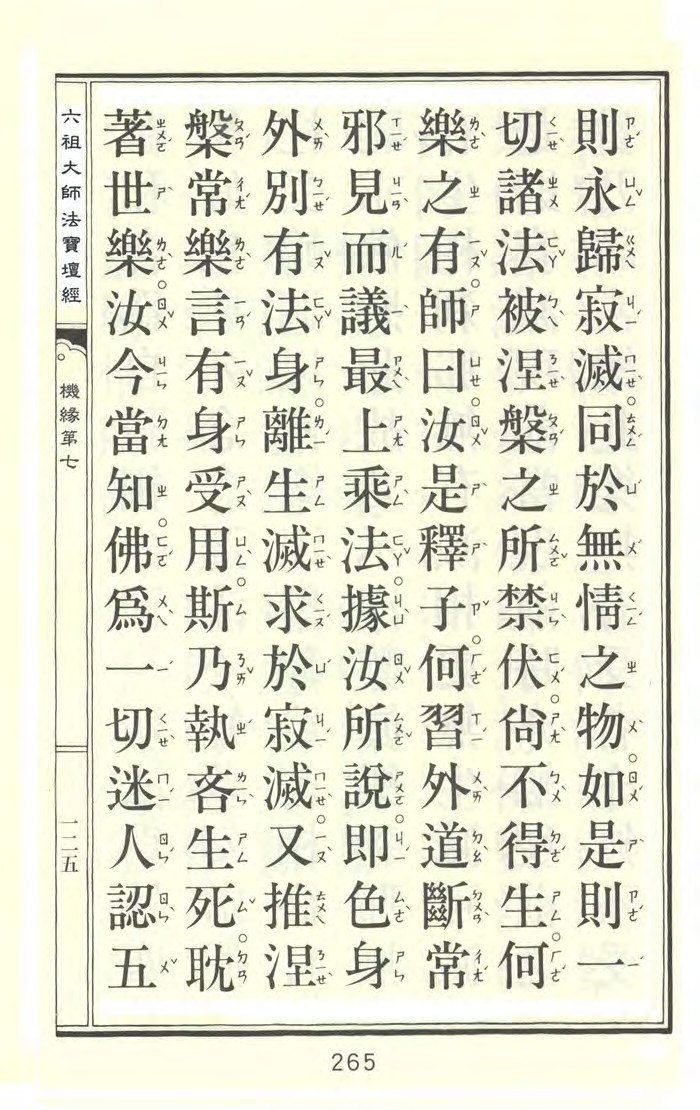 則永歸寂滅。同於無情之物。如是則一
切諸法被涅槃之所禁伏。尙不得生。何
樂之有。師曰。汝是釋子。何習外道斷常
邪見。而議最上乘法。據汝所說。即色身
外別有法身。離生滅求於寂滅。又推涅
槃常樂。言有身受用。斯乃執吝生死。耽
著世樂。汝今當知。佛爲一切迷人認五
六祖大師法寶壇經
機緣第七
一二五
265